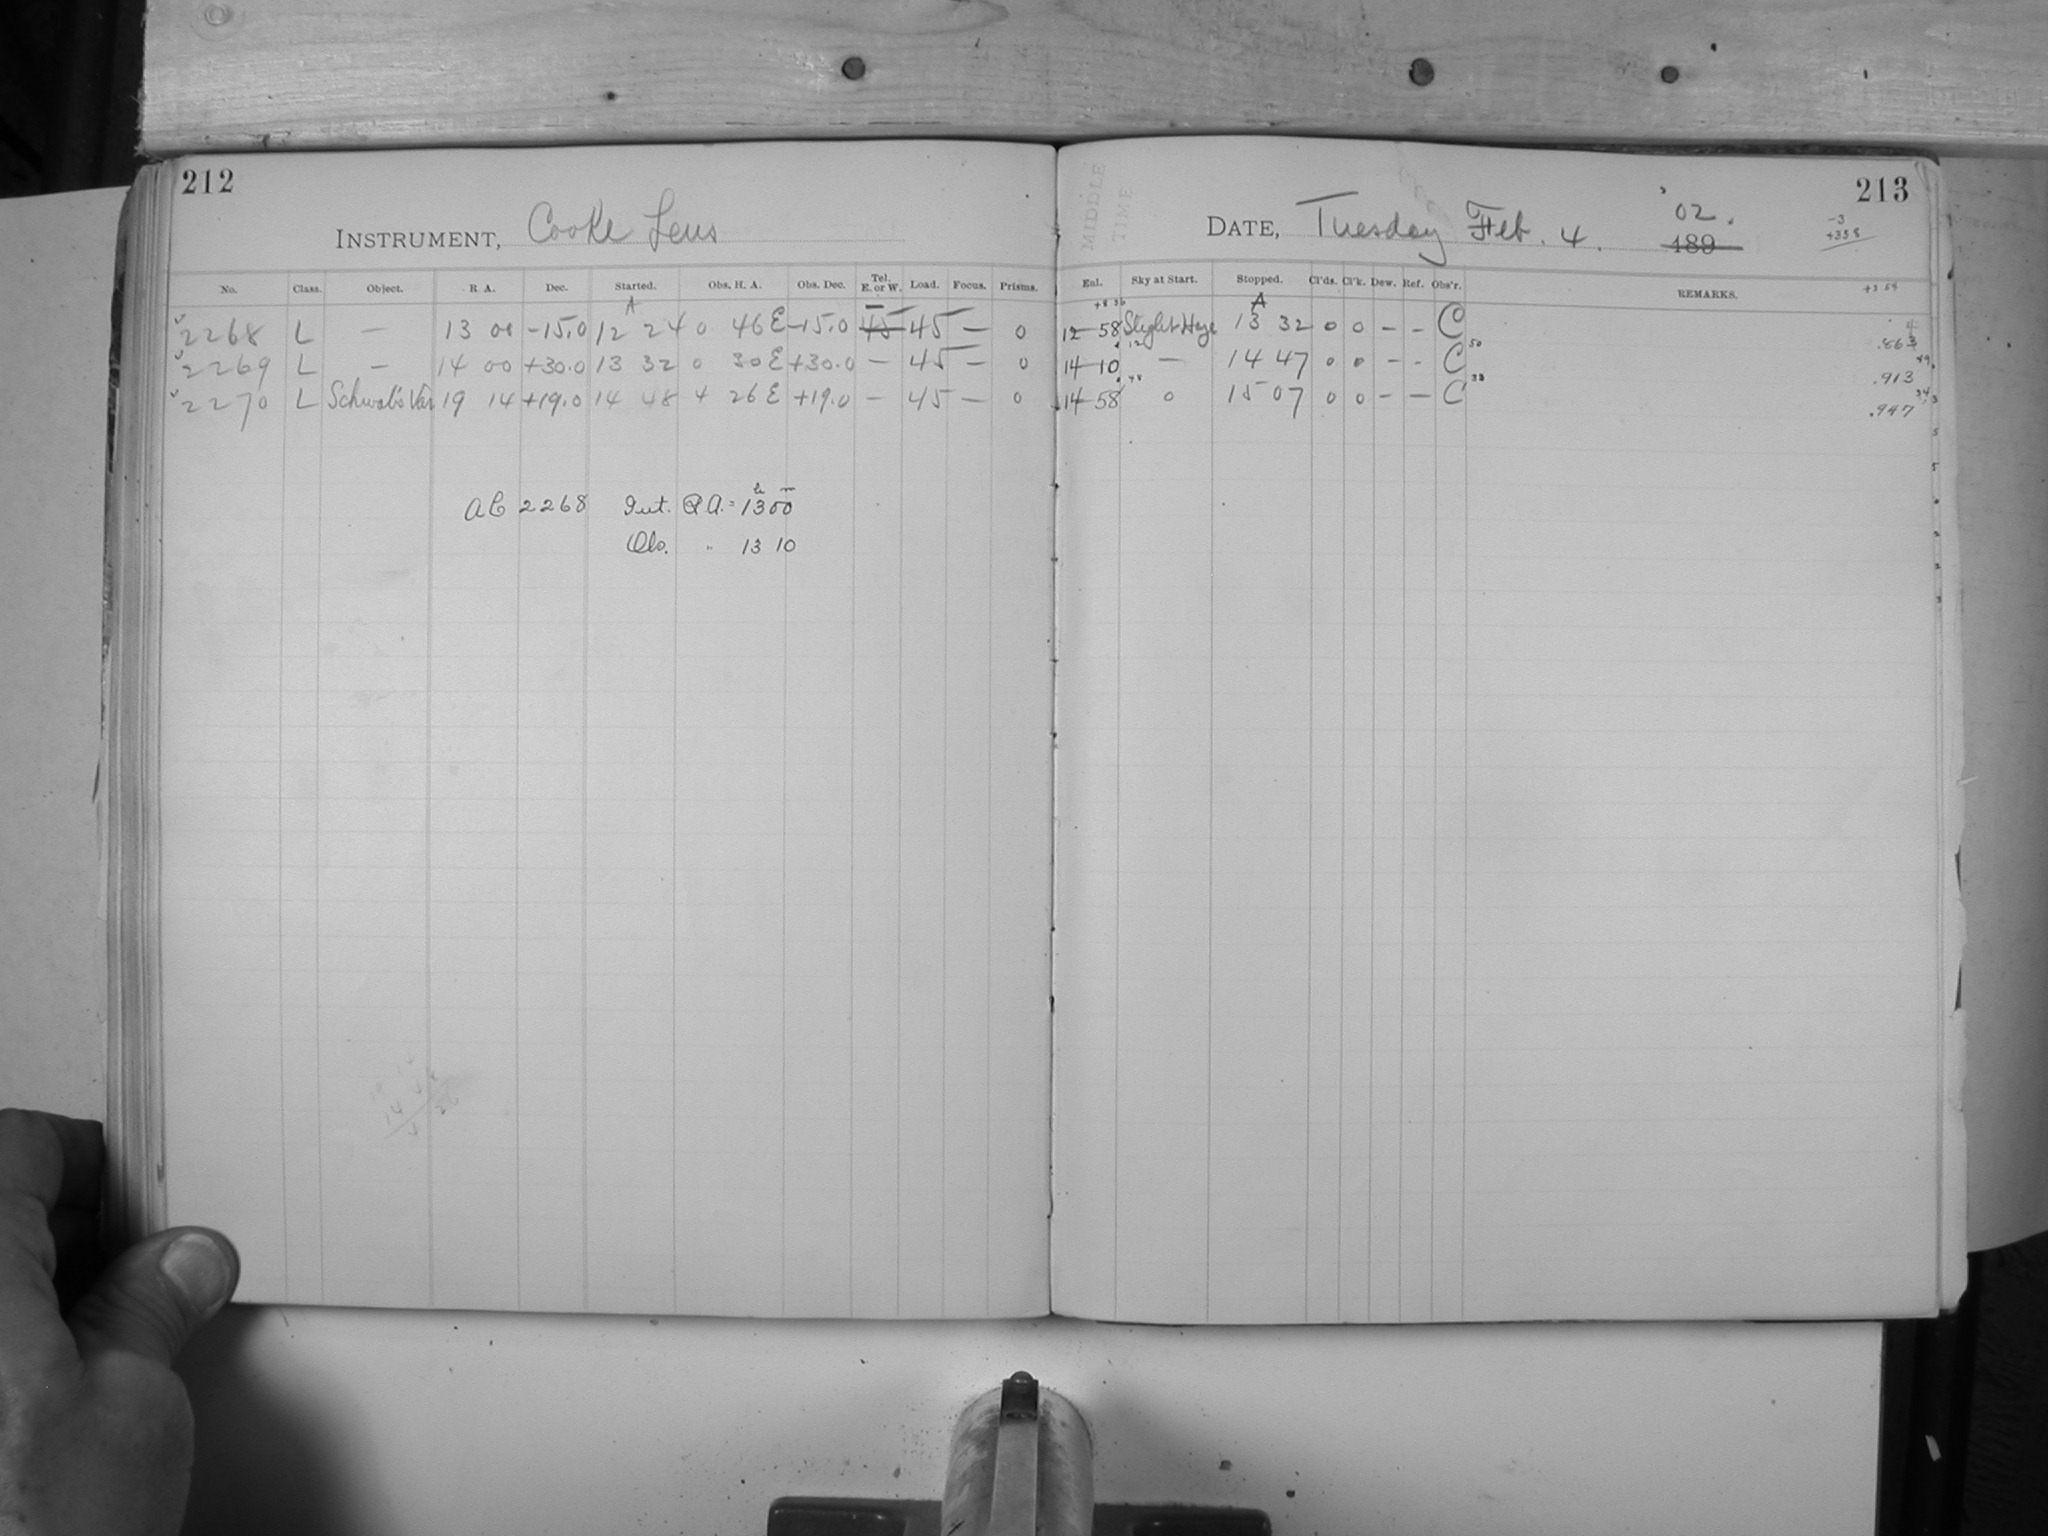 212
INSTRUMENT, Cooke Lens
No. Class. Object. R. A. Dec. Started. Obs. H. A. Obs. Dec. Tel. E. or W. Load. Focus. Prisms.
A
2268 L — 13 00 -15.0 12 24 0 46 E -15.0 45 45 — 0
2269 L — 14 00 +30.0 13 32 0 30 E +30.0 — 45 — 0
2270 L Schwab's Var 19 14 +19.0 14 48 4 26 E +19.0 — 45 — 0
AC 2268 Int. R.A. = 13h 00m
Obs. " 13 10
MIDDLE TIME
213
DATE, Tuesday Feb. 4. '02. 189
-3
+358
Enl. Sky at Start. Stopped. Cl'ds. Cl'k. Dew. Ref. Obs'r. REMARKS.
+8 36 A +3 54
12 58 Slight Haze 13 32 0 0 - - C .863
14 10 — 14 47 0 0 - - C 50 .913
14 58 0 15 07 0 0 - - C 33 .947